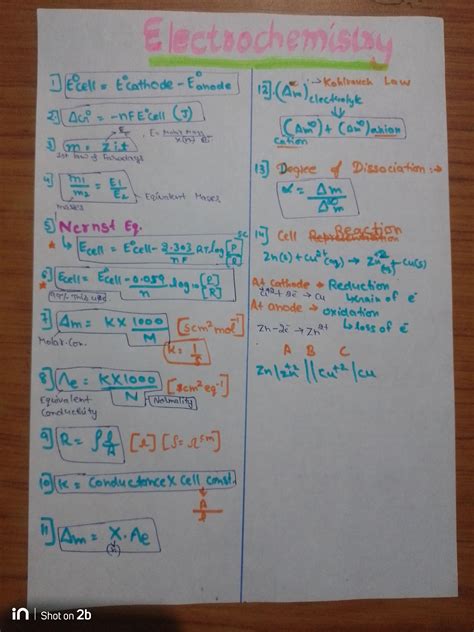 Electrochemistry
1) E°cell = E°cathode - E°anode
2) ΔG° = -nFE°cell (J)
3) m = Zit
1st law of Faradays
4) m1/m2 = E1/E2
Masses
Equivalent Masses
5) Nernst Eq.
* ↳ Ecell = E°cell - 2.303 RT/nF log [P]/[R]
* 6) Ecell = E°cell - 0.059/n log [P]/[R]
7) Λm = K × 1000/M [Scm²mol⁻¹]
Molar. Con.
8) Λe = K×1000/N [scm²eq⁻¹]
Equivalent
Conductivity
Normality
9) R = ρ l/A
10) K = Conductance × Cell const.
A/l
11) Λm = X · Λe
(n)
12) (Λm°) electrolyte
:→ Kohlrausch Law
↓
(Λm°) + (Λm°) anion
cation
13) Degree of Dissociation :→
α = Λm/Λ°m
14) Cell Representation Reaction
Zn(s) + Cu²⁺(aq) → Zn²⁺ + Cu(s)
At cathode → Reduction
Cu⁺² + 2e⁻ → Cu
↳ gain of e⁻
At anode → oxidation
Zn - 2e⁻ → Zn²⁺
↳ loss of e⁻
A B C
Zn | Zn⁺² || Cu⁺² | Cu
in | Shot on 2b